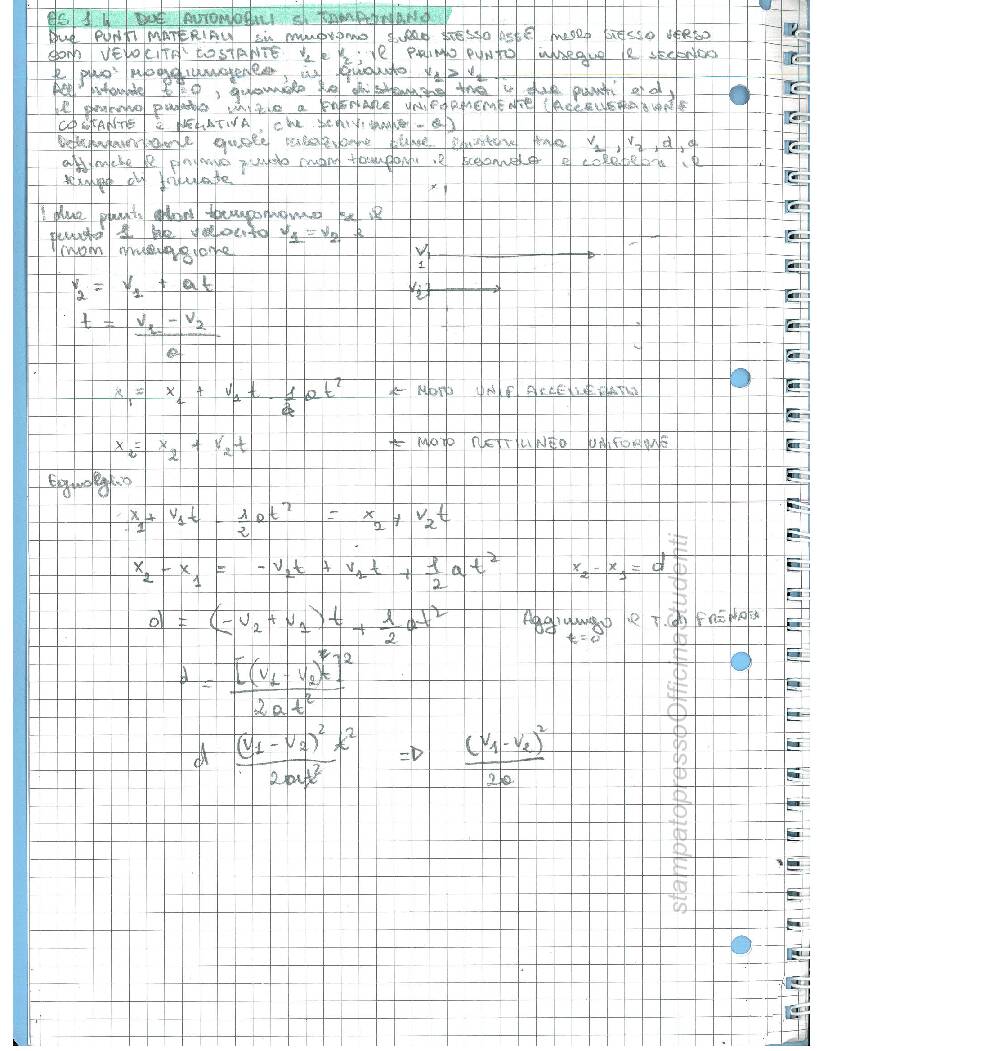 ES. 1.4 DUE AUTOMOBILI SI TAMPONANO
DUE PUNTI MATERIALI si muovono sullo STESSO ASSE nello STESSO VERSO
con VELOCITA' COSTANTE v₁ e v₂; il PRIMO PUNTO insegue il secondo
e puo' raggiungerlo, in quanto v₁ > v₂
All'istante t=0, quando la distanza tra i due punti è d,
il primo punto inizia a FRENARE UNIFORMEMENTE (ACCELLERAZIONE
COSTANTE E NEGATIVA, che SCRIVIAMO -a)
Determinare quale relazione deve esistere tra v₁, v₂, d, a
affinche il primo punto non tamponi il secondo e calcolare il
tempo di frenata
I due punti non tamponano se il
punto 1 ha velocità v₁ = v₂ e
non maggiore
v₁
v₂
v₂ = v₁ + at
t = (v₁ - v₂) / a
x₁ = x₁ + v₁t - 1/2 at² ← MOTO UNIF ACCELLERATO
x₂ = x₂ + v₂t ← MOTO RETTILINEO UNIFORME
Eguaglio
x₁ + v₁t - 1/2 at² = x₂ + v₂t
x₂ - x₁ = -v₂t + v₁t + 1/2 at² x₂ - x₁ = d
d = (-v₂ + v₁)t + 1/2 at² Aggiungo il T. di FRENATA
t=0
d = [(v₁ - v₂)t]² / 2at²
d (v₁ - v₂)² t² / 2at² => (v₁ - v₂)² / 2a
stampatopressoOfficinaStudenti